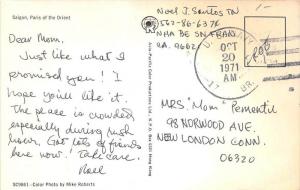 Saigon, Paris of the Orient
Dear Mom,
Just like what I
promised you! I
hope you'll like it.
The place is crowded
especially during rush
hour. Got lots of friends
here now! Take care.
Noel
SC9861 - Color Photo by Mike Roberts
Noel J. Santos TN
NHA BE SN FRAN
CA. 96626
OCT
20
AM
1971
MRS "Mom" Pementil
98 NORWOOD AVE
NEW LONDON CONN.
06320